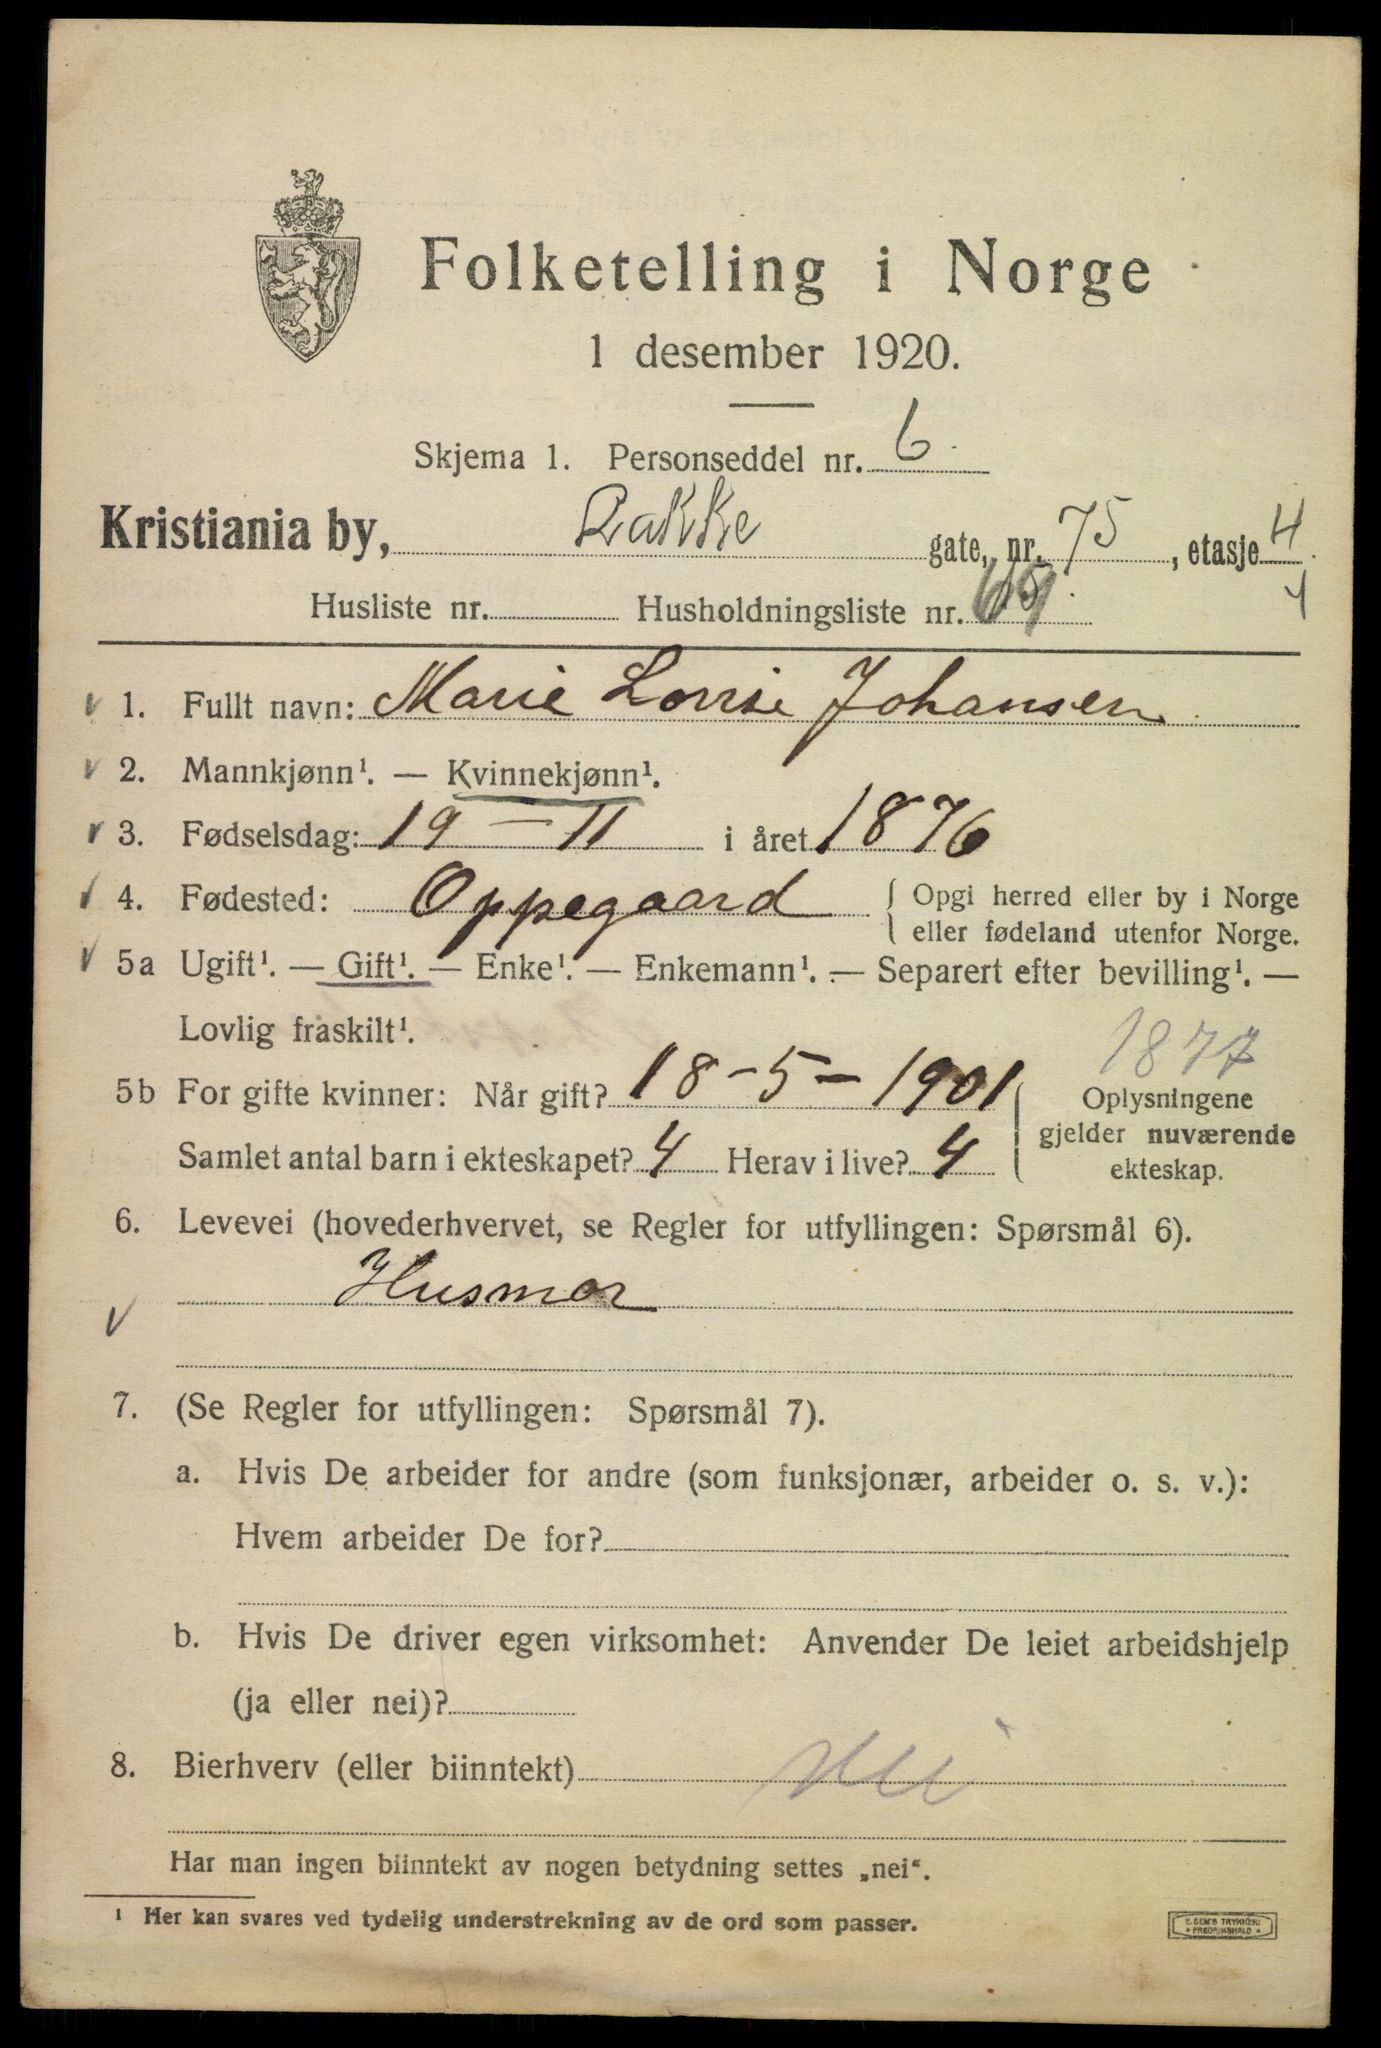 Folketelling i Norge
1 desember 1920.
Skjema 1. Personseddel nr. 6.
Kristiania by, Bakke gate, nr. 75, etasje 4.
4
Husliste nr. Husholdningsliste nr.
1. Fullt navn: Marie Lovise Johansen
2. Mannkjønn¹. — Kvinnekjønn¹.
3. Fødselsdag: 19 – 11 i året 1876
4. Fødested: Oppegaard { Opgi herred eller by i Norge
eller fødeland utenfor Norge.
5a Ugift¹. — Gift¹. — Enke¹. — Enkemann¹. — Separert efter bevilling¹. —
Lovlig fraskilt¹.
1877
5b For gifte kvinner: Når gift? 18-5-1901 { Oplysningene
gjelder nuværende
Samlet antal barn i ekteskapet? 4 Herav i live? 4
ekteskap.
6. Levevei (hovederhvervet, se Regler for utfyllingen: Spørsmål 6).
Husmor
7. (Se Regler for utfyllingen: Spørsmål 7).
a. Hvis De arbeider for andre (som funksjonær, arbeider o. s. v.):
Hvem arbeider De for?
b. Hvis De driver egen virksomhet: Anvender De leiet arbeidshjelp
(ja eller nei)?
8. Bierhverv (eller biinntekt) nei
Har man ingen biinntekt av nogen betydning settes „nei“.
¹ Her kan svares ved tydelig understrekning av de ord som passer.
E. SEM'S TRYKKERI
* FREDRIKSHALD *